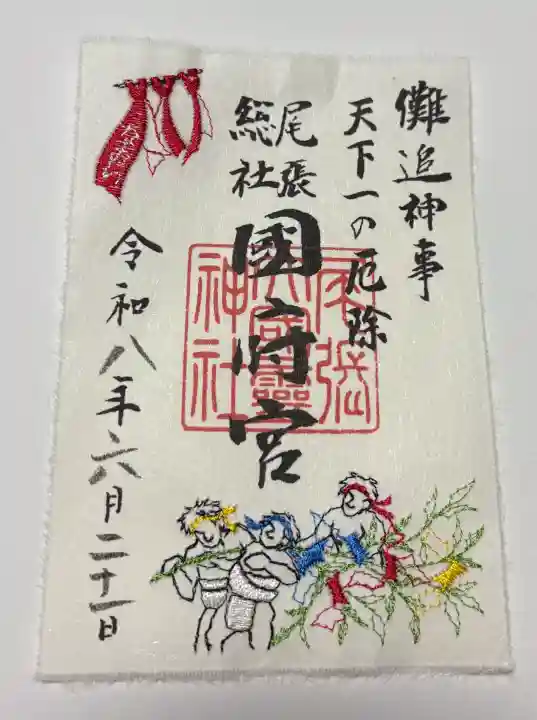 儺追神事
天下一の厄除
尾張
総社
國府宮
尾張
大國霊
神社
令和八年六月二十一日